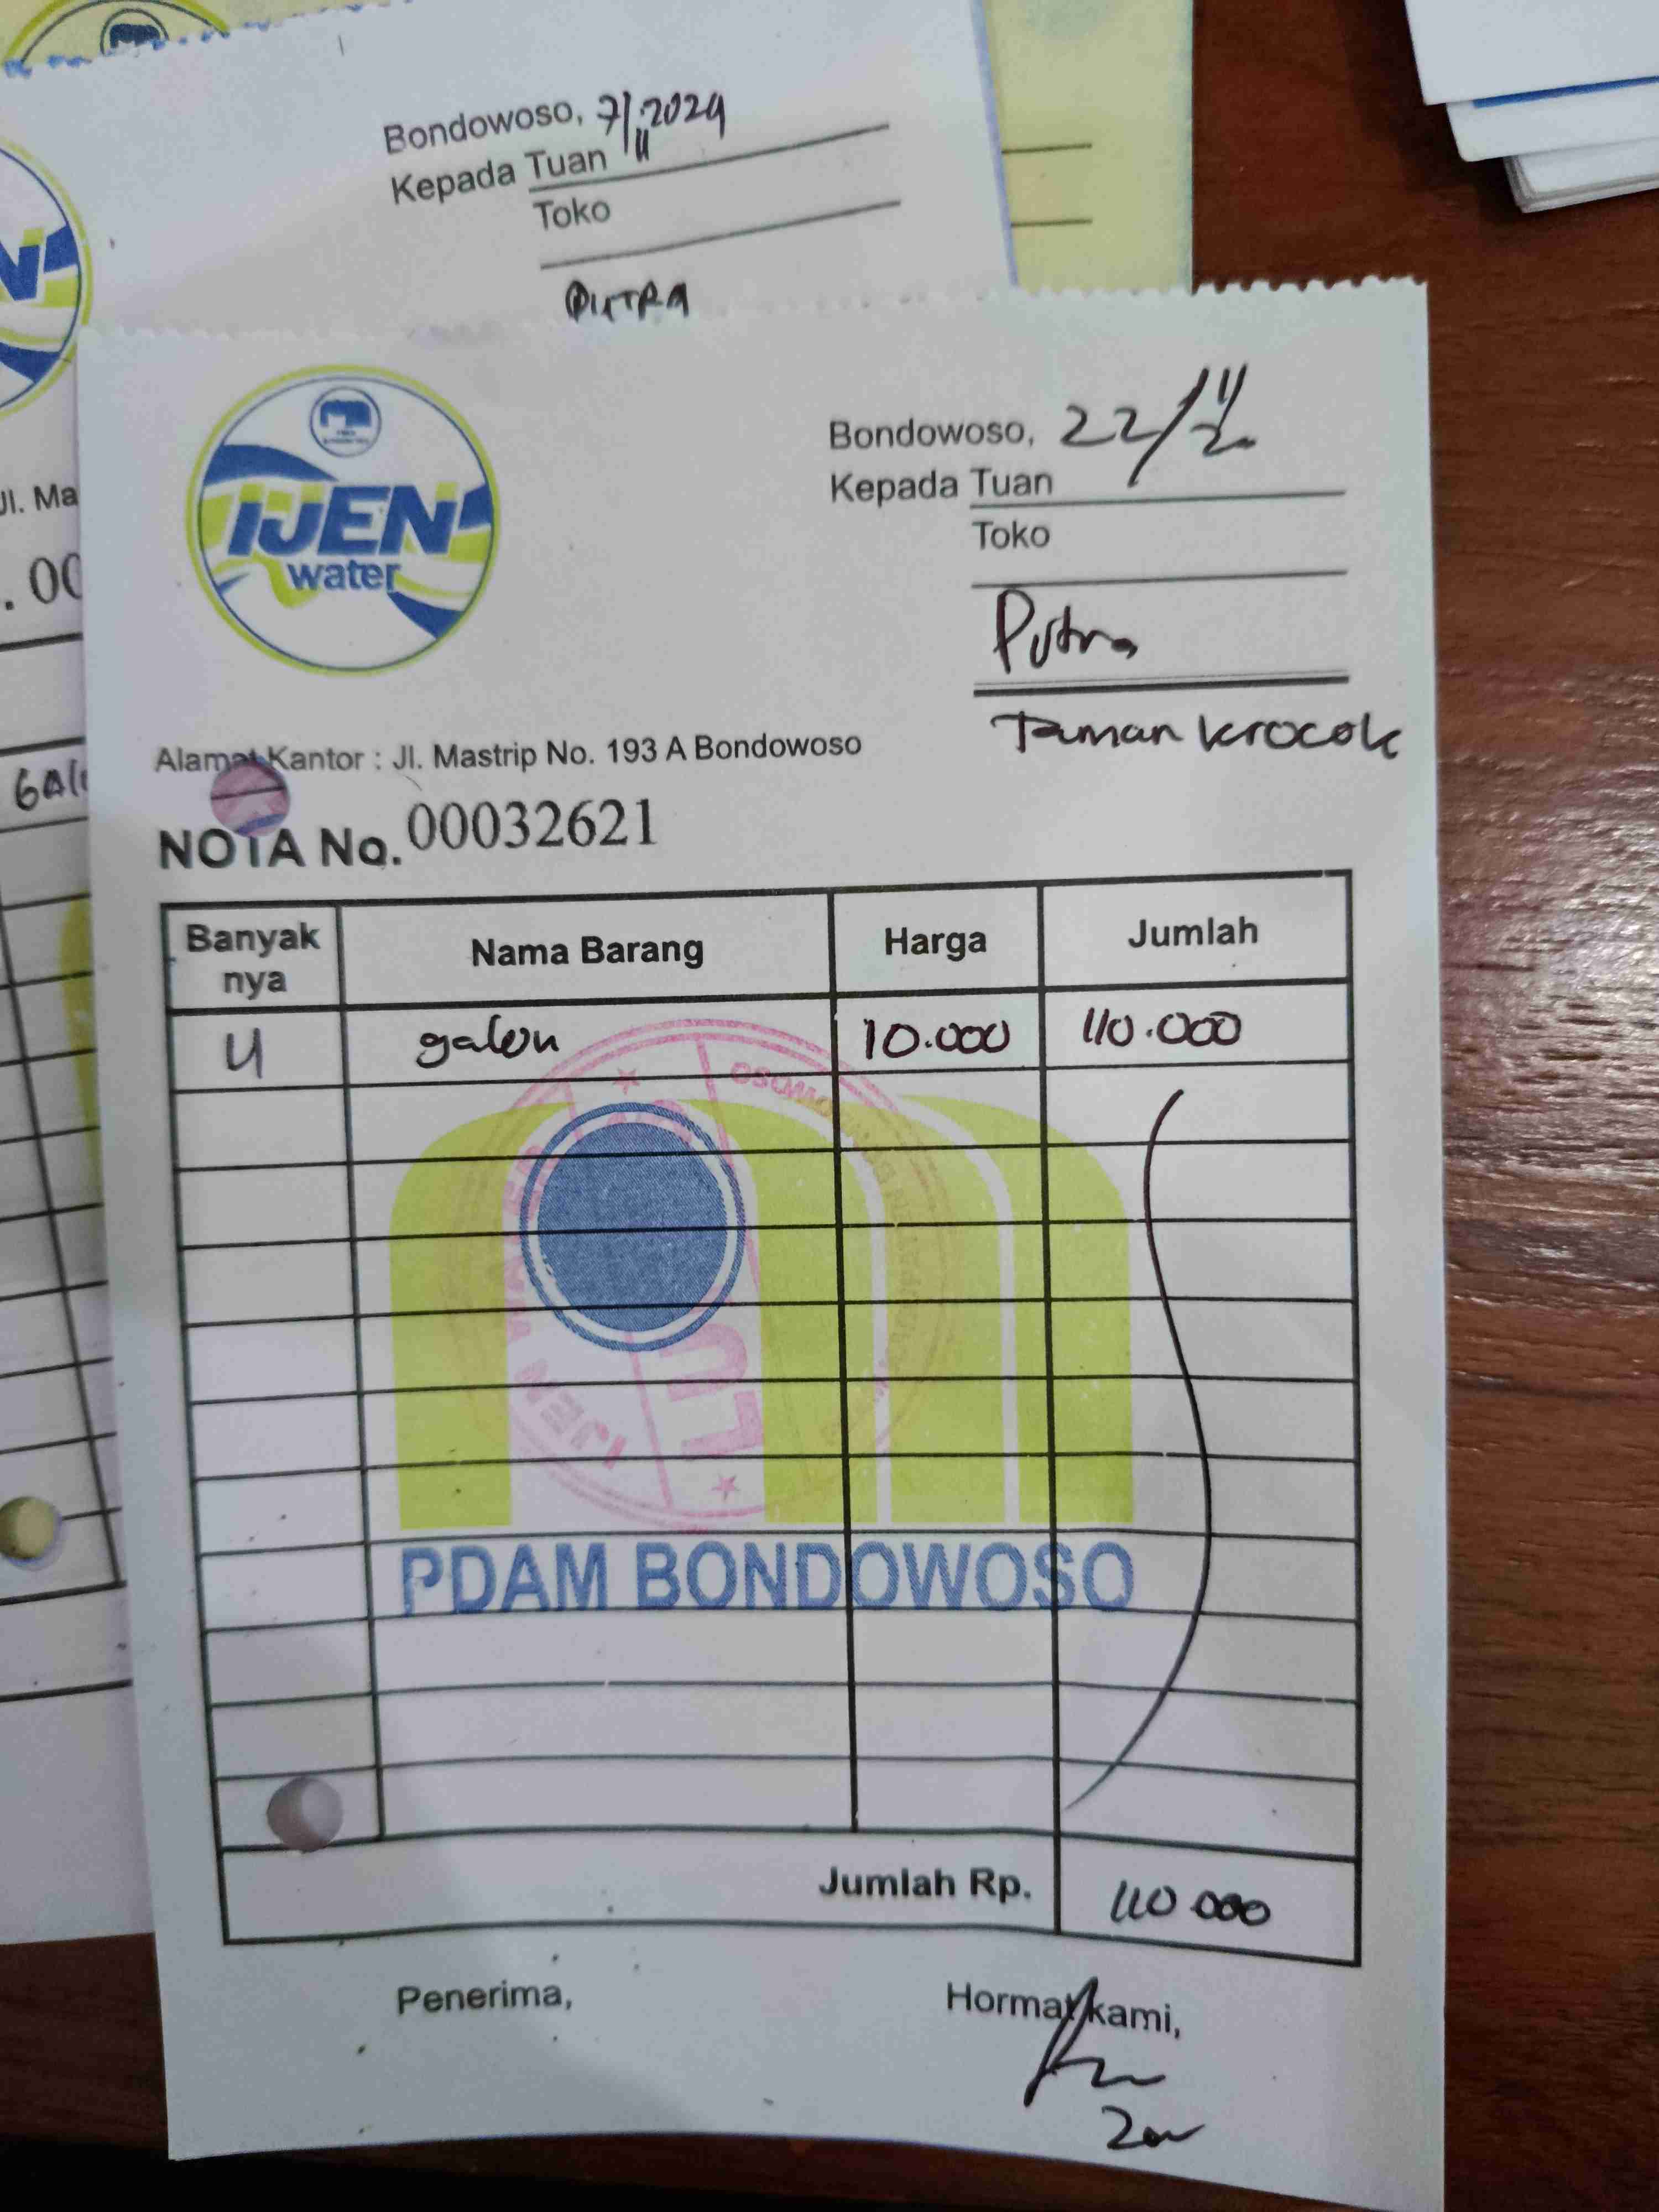 Bondowoso, 7/11 2024
Kepada Tuan
Toko
PUTRA
Jl. Ma
. 00
GAL
IJEN
water
Bondowoso, 22/11
Kepada Tuan
Toko
Putra
Taman Krocok
Alamat Kantor : Jl. Mastrip No. 193 A Bondowoso
NOTA No. 00032621
Banyak nya Nama Barang Harga Jumlah
11 galon 10.000 110.000
IJEN WATER
LU
PDAM BONDOWOSO
Jumlah Rp. 110.000
Penerima, Hormat kami,